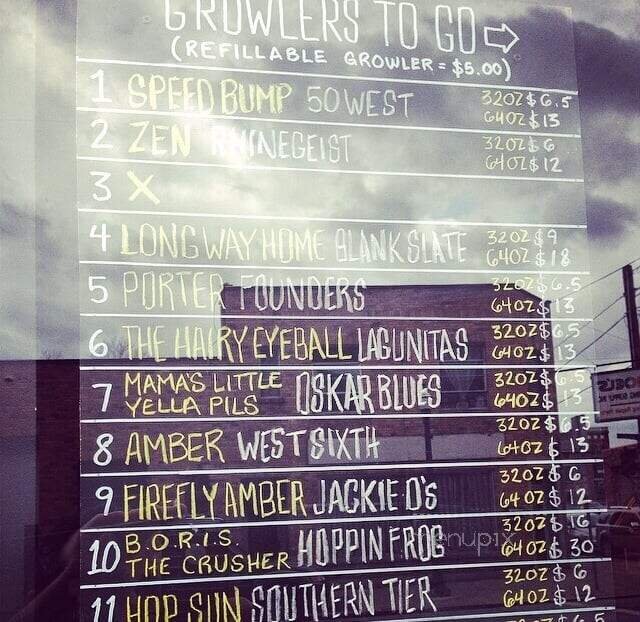 GROWLERS TO GO ⇨
(REFILLABLE GROWLER = $5.00)
1 SPEED BUMP 50 WEST 32OZ $6.5
64OZ $13
2 ZEN RHINEGEIST 32OZ $6
64OZ $12
3 X
4 LONG WAY HOME BLANK SLATE 32OZ $9
64OZ $18
5 PORTER FOUNDERS 32OZ $6.5
64OZ $13
6 THE HAIRY EYEBALL LAGUNITAS 32OZ $6.5
64OZ $13
7 MAMA'S LITTLE YELLA PILS OSKAR BLUES 32OZ $6.5
64OZ $13
8 AMBER WEST SIXTH 32OZ $6.5
64OZ $13
9 FIREFLY AMBER JACKIE O'S 32OZ $6
64OZ $12
10 B.O.R.I.S. THE CRUSHER HOPPIN FROG 32OZ $16
64OZ $30
11 HOP SUN SOUTHERN TIER 32OZ $6
64OZ $12